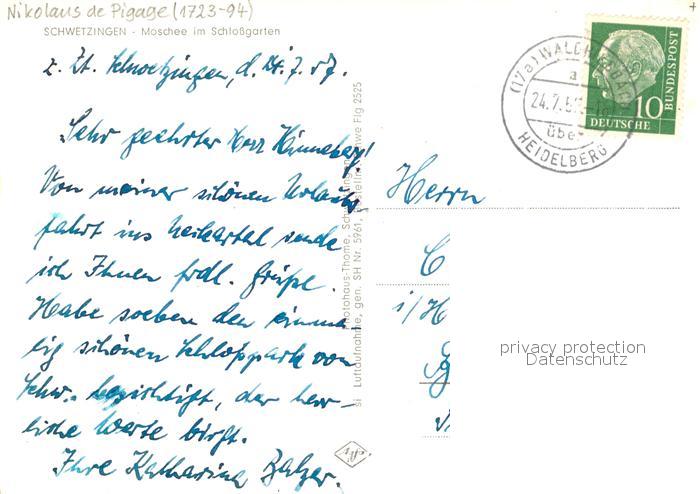 Nikolaus de Pigage (1723-94)
SCHWETZINGEN - Moschee im Schloßgarten
z. Zt. Schwetzingen, d. 24.7.57.
Sehr geehrter Herr Hinneberg!
Von meiner schönen Urlaubs
fahrt ins Neckartal sende
ich Ihnen frdl. Grüße.
Habe soeben den einma
lig schönen Schloßpark von
Schw. besichtigt, der herr-
liche Werte birgt.
Ihre Katharina Balzer.
si Luftaufnahme, gen. SH Nr. 5961,
Flg 2525
(17a) WALD
a
24.7.5
über
HEIDELBERG
10
DEUTSCHE
BUNDESPOST
Herrn
C
i/H
privacy protection
Datenschutz